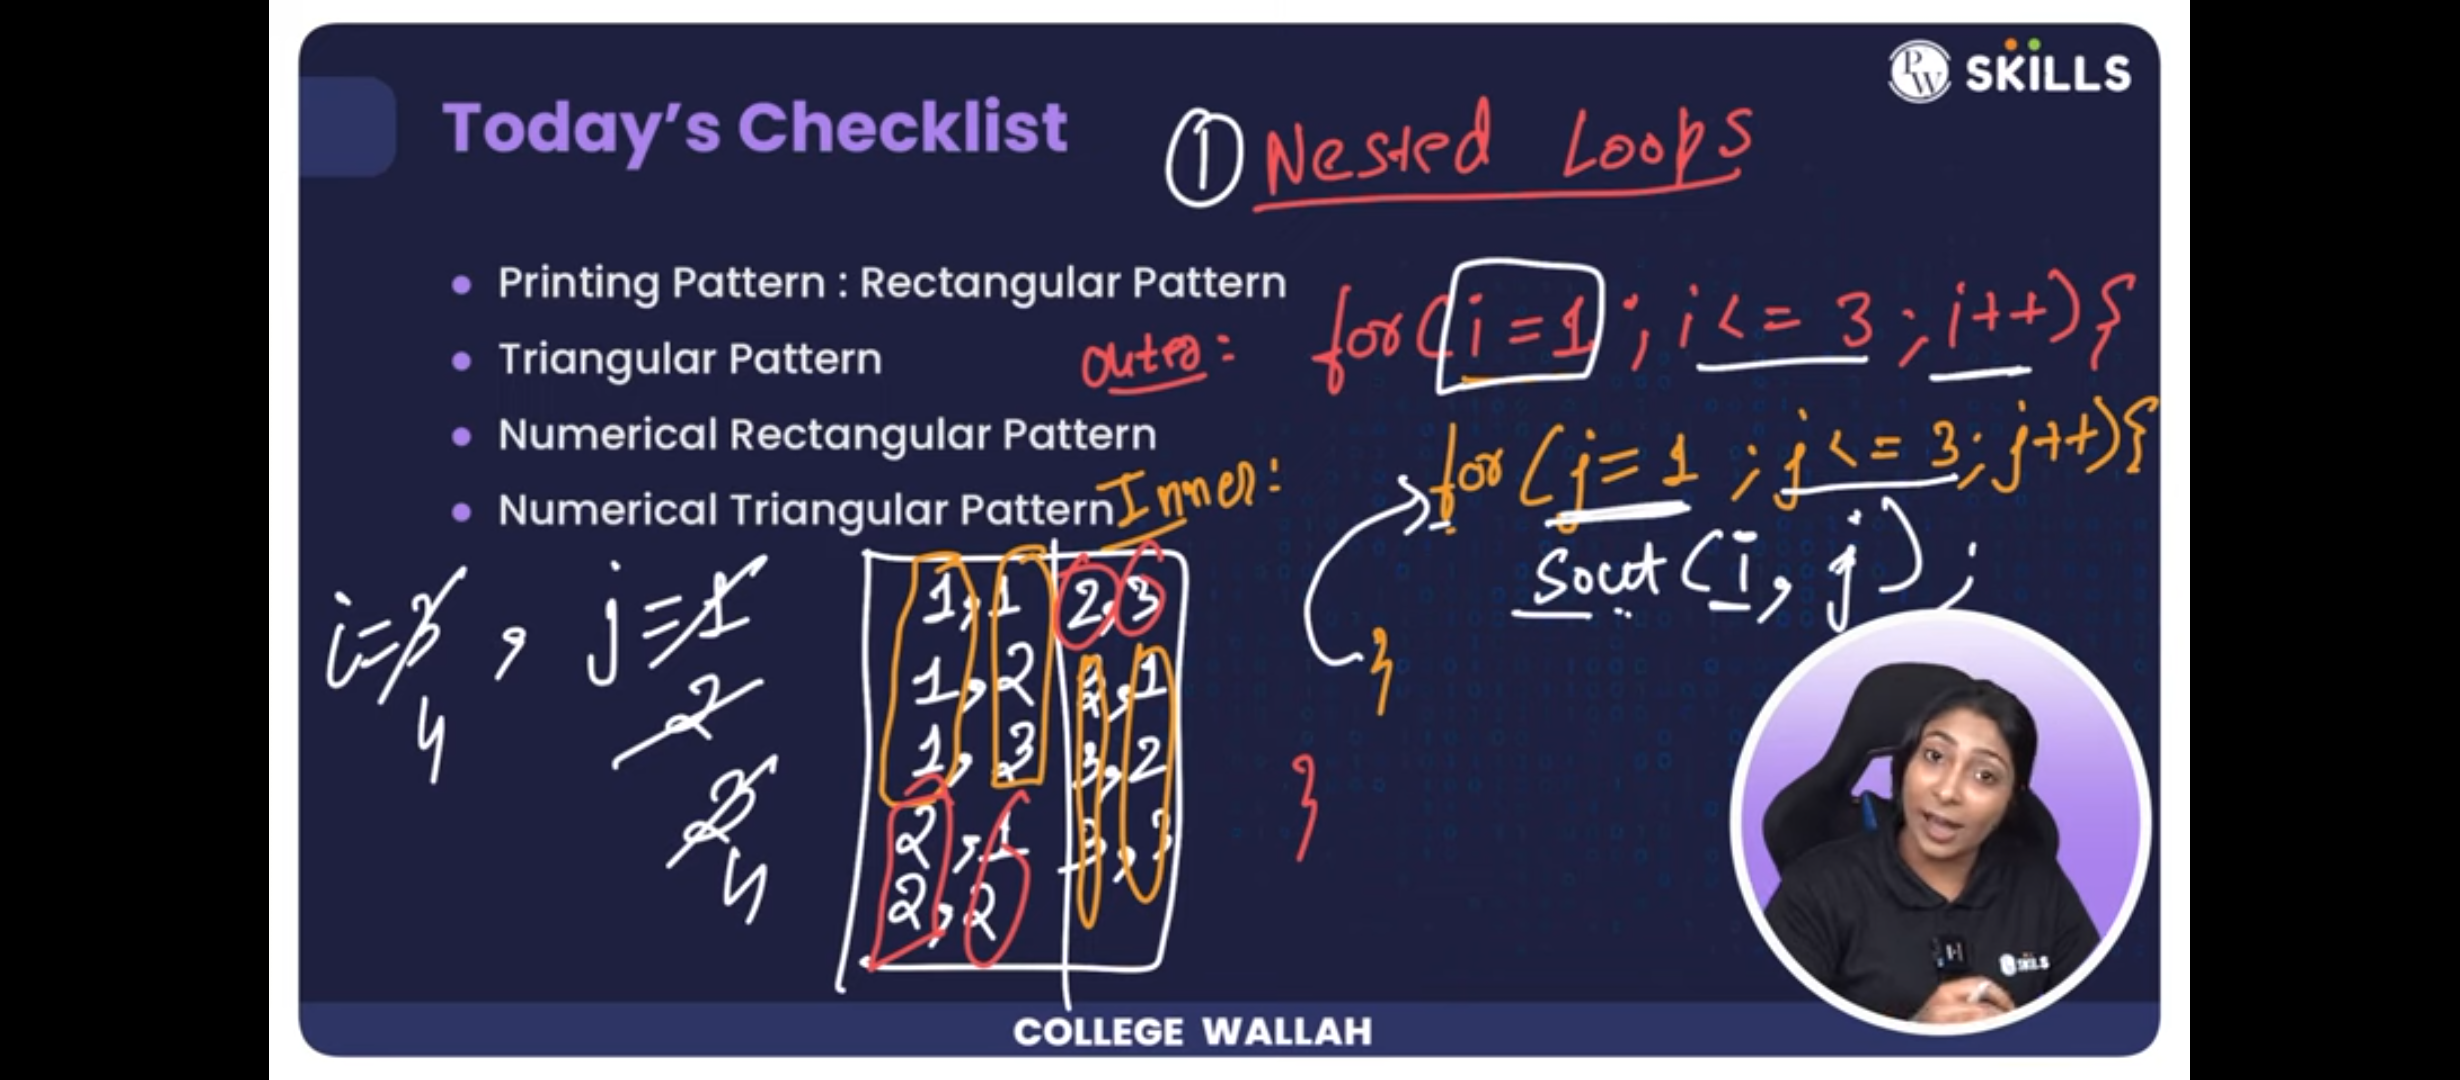 PW SKILLS
Today's Checklist
① Nested Loops
Printing Pattern : Rectangular Pattern
Triangular Pattern
Numerical Rectangular Pattern
Numerical Triangular Pattern
Outer: for(i=1; i<=3; i++){
Inner: for(j=1; j<=3; j++){
Sout(i, j);
}
}
i=3, j=1
4
2
3
4
1,1
1,2
1,3
2,1
2,2
2,3
3,1
3,2
3,3
SKILLS
COLLEGE WALLAH